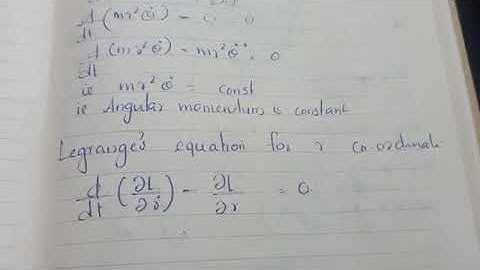 d/dt (mr²θ̇) - 0 0
d/dt (mr²θ̇) = mr²θ̈ = 0
ie mr²θ̇ = const
ie Angular momentum is constant
Legrange's equation for r co-ordinate
d/dt (∂L/∂ṙ) - ∂L/∂r = 0